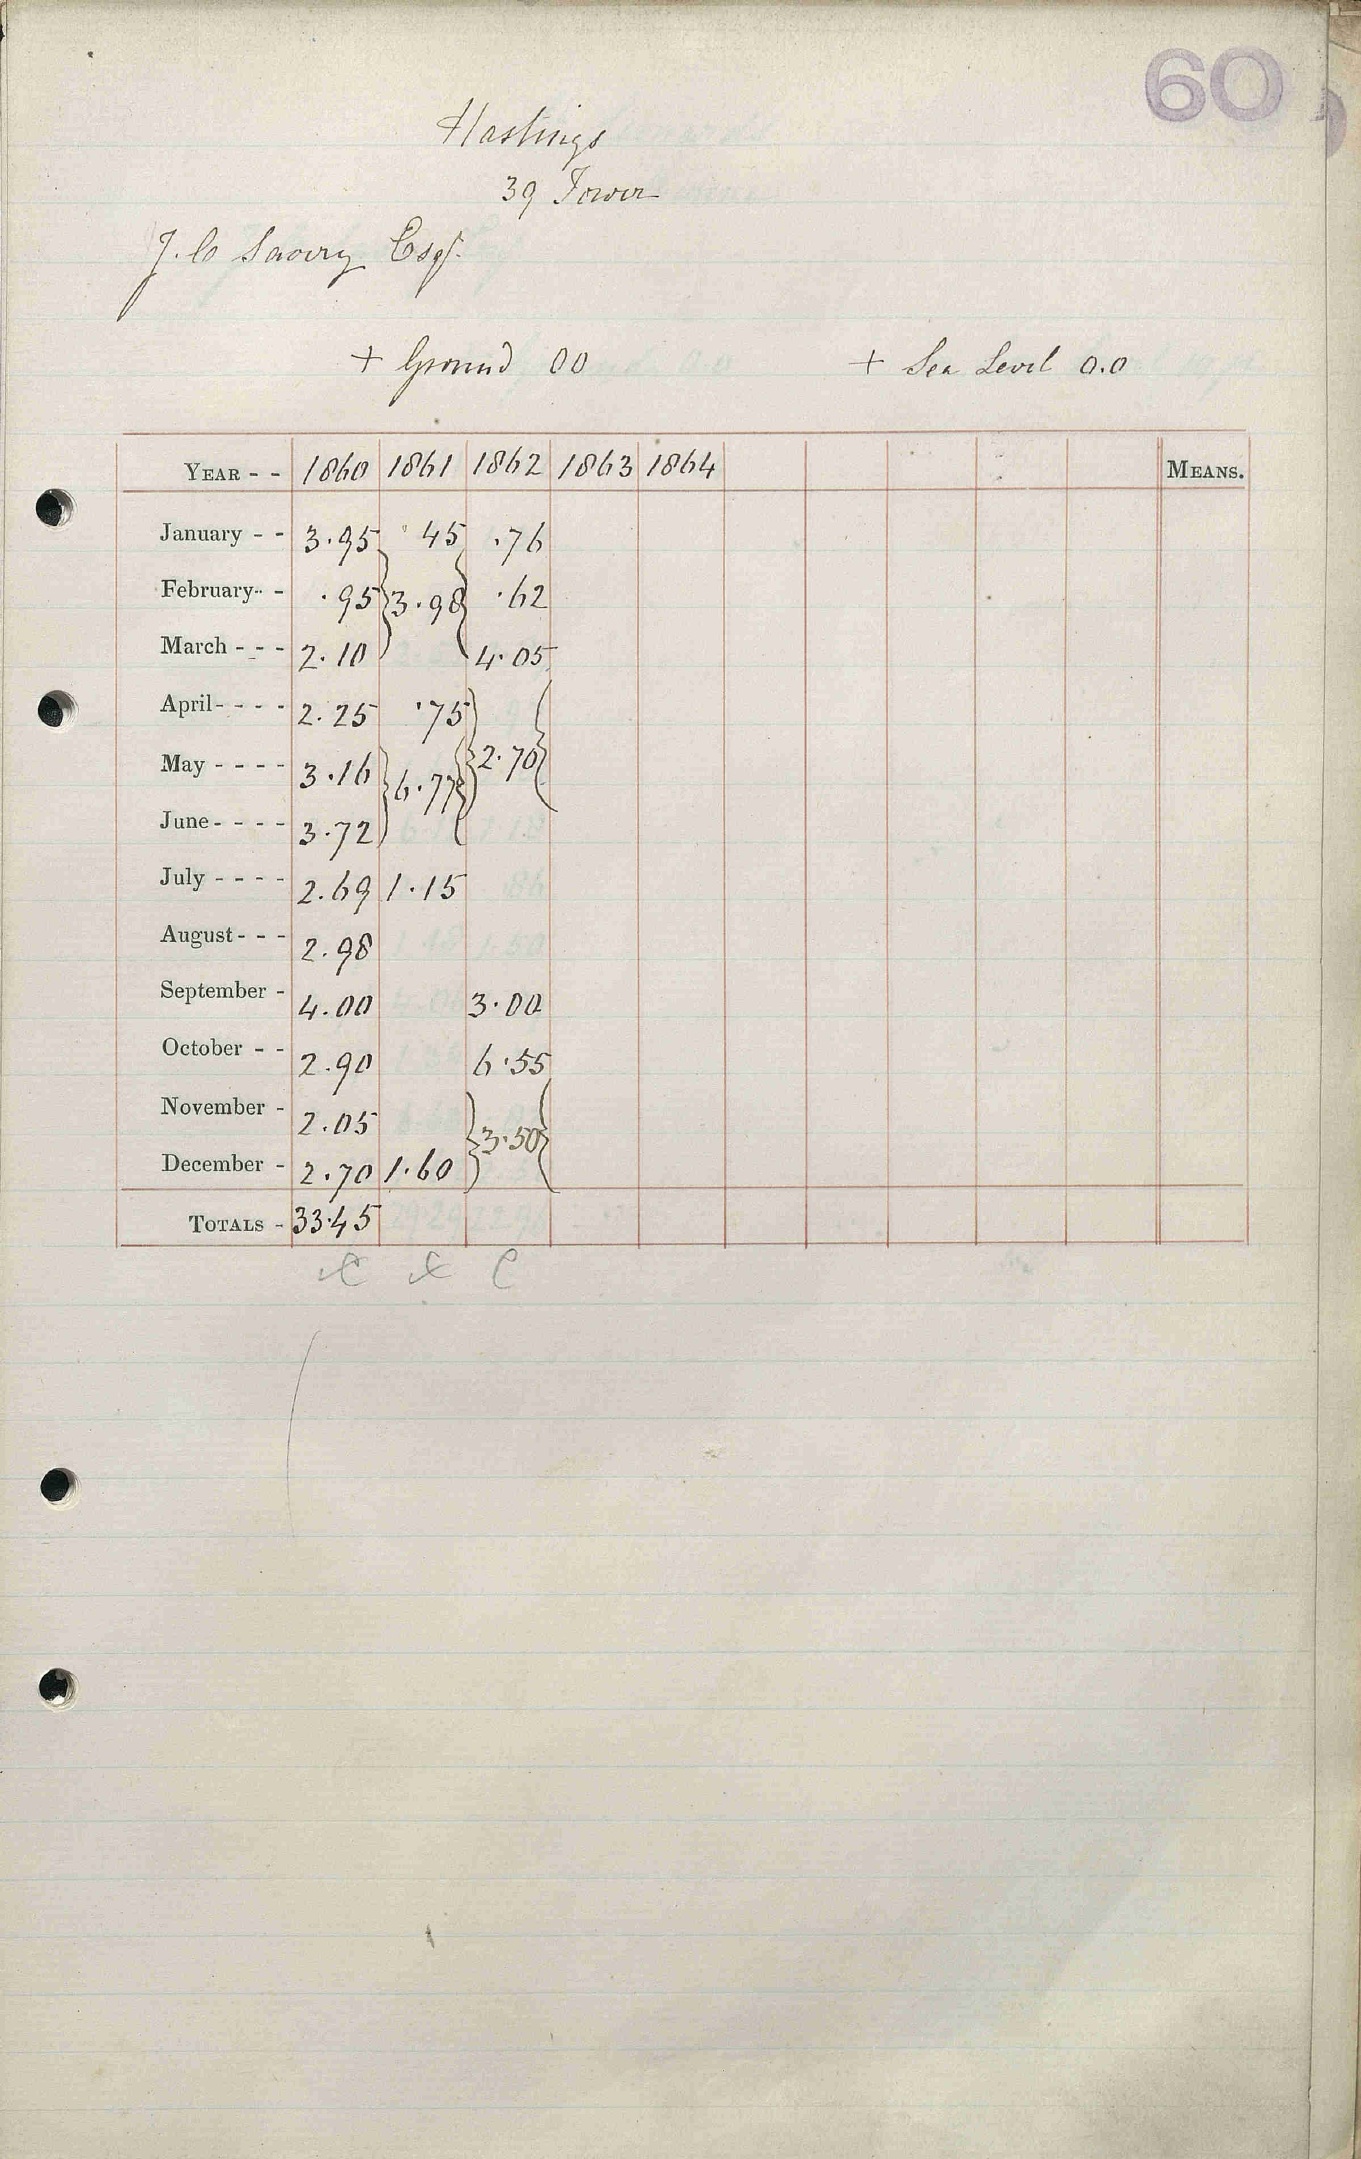 60
Hastings
39 Tower
J. C Savery Esqr.
+ Ground 00 + Sea Level 0.0
YEAR - - 1860 1861 1862 1863 1864 MEANS.
January - - 3.95 .45 .76
February - - .95 } 3.98 { .62
March - - - 2.10 4.05
April - - - - 2.25 .75
May - - - - 3.16 } 6.77 { } 2.70 {
June - - - - 3.72
July - - - - 2.69 1.15
August - - - 2.98
September - 4.00 3.00
October - - 2.90 6.55
November - 2.05 } 3.50 {
December - 2.70 1.60
TOTALS - 33.45
C